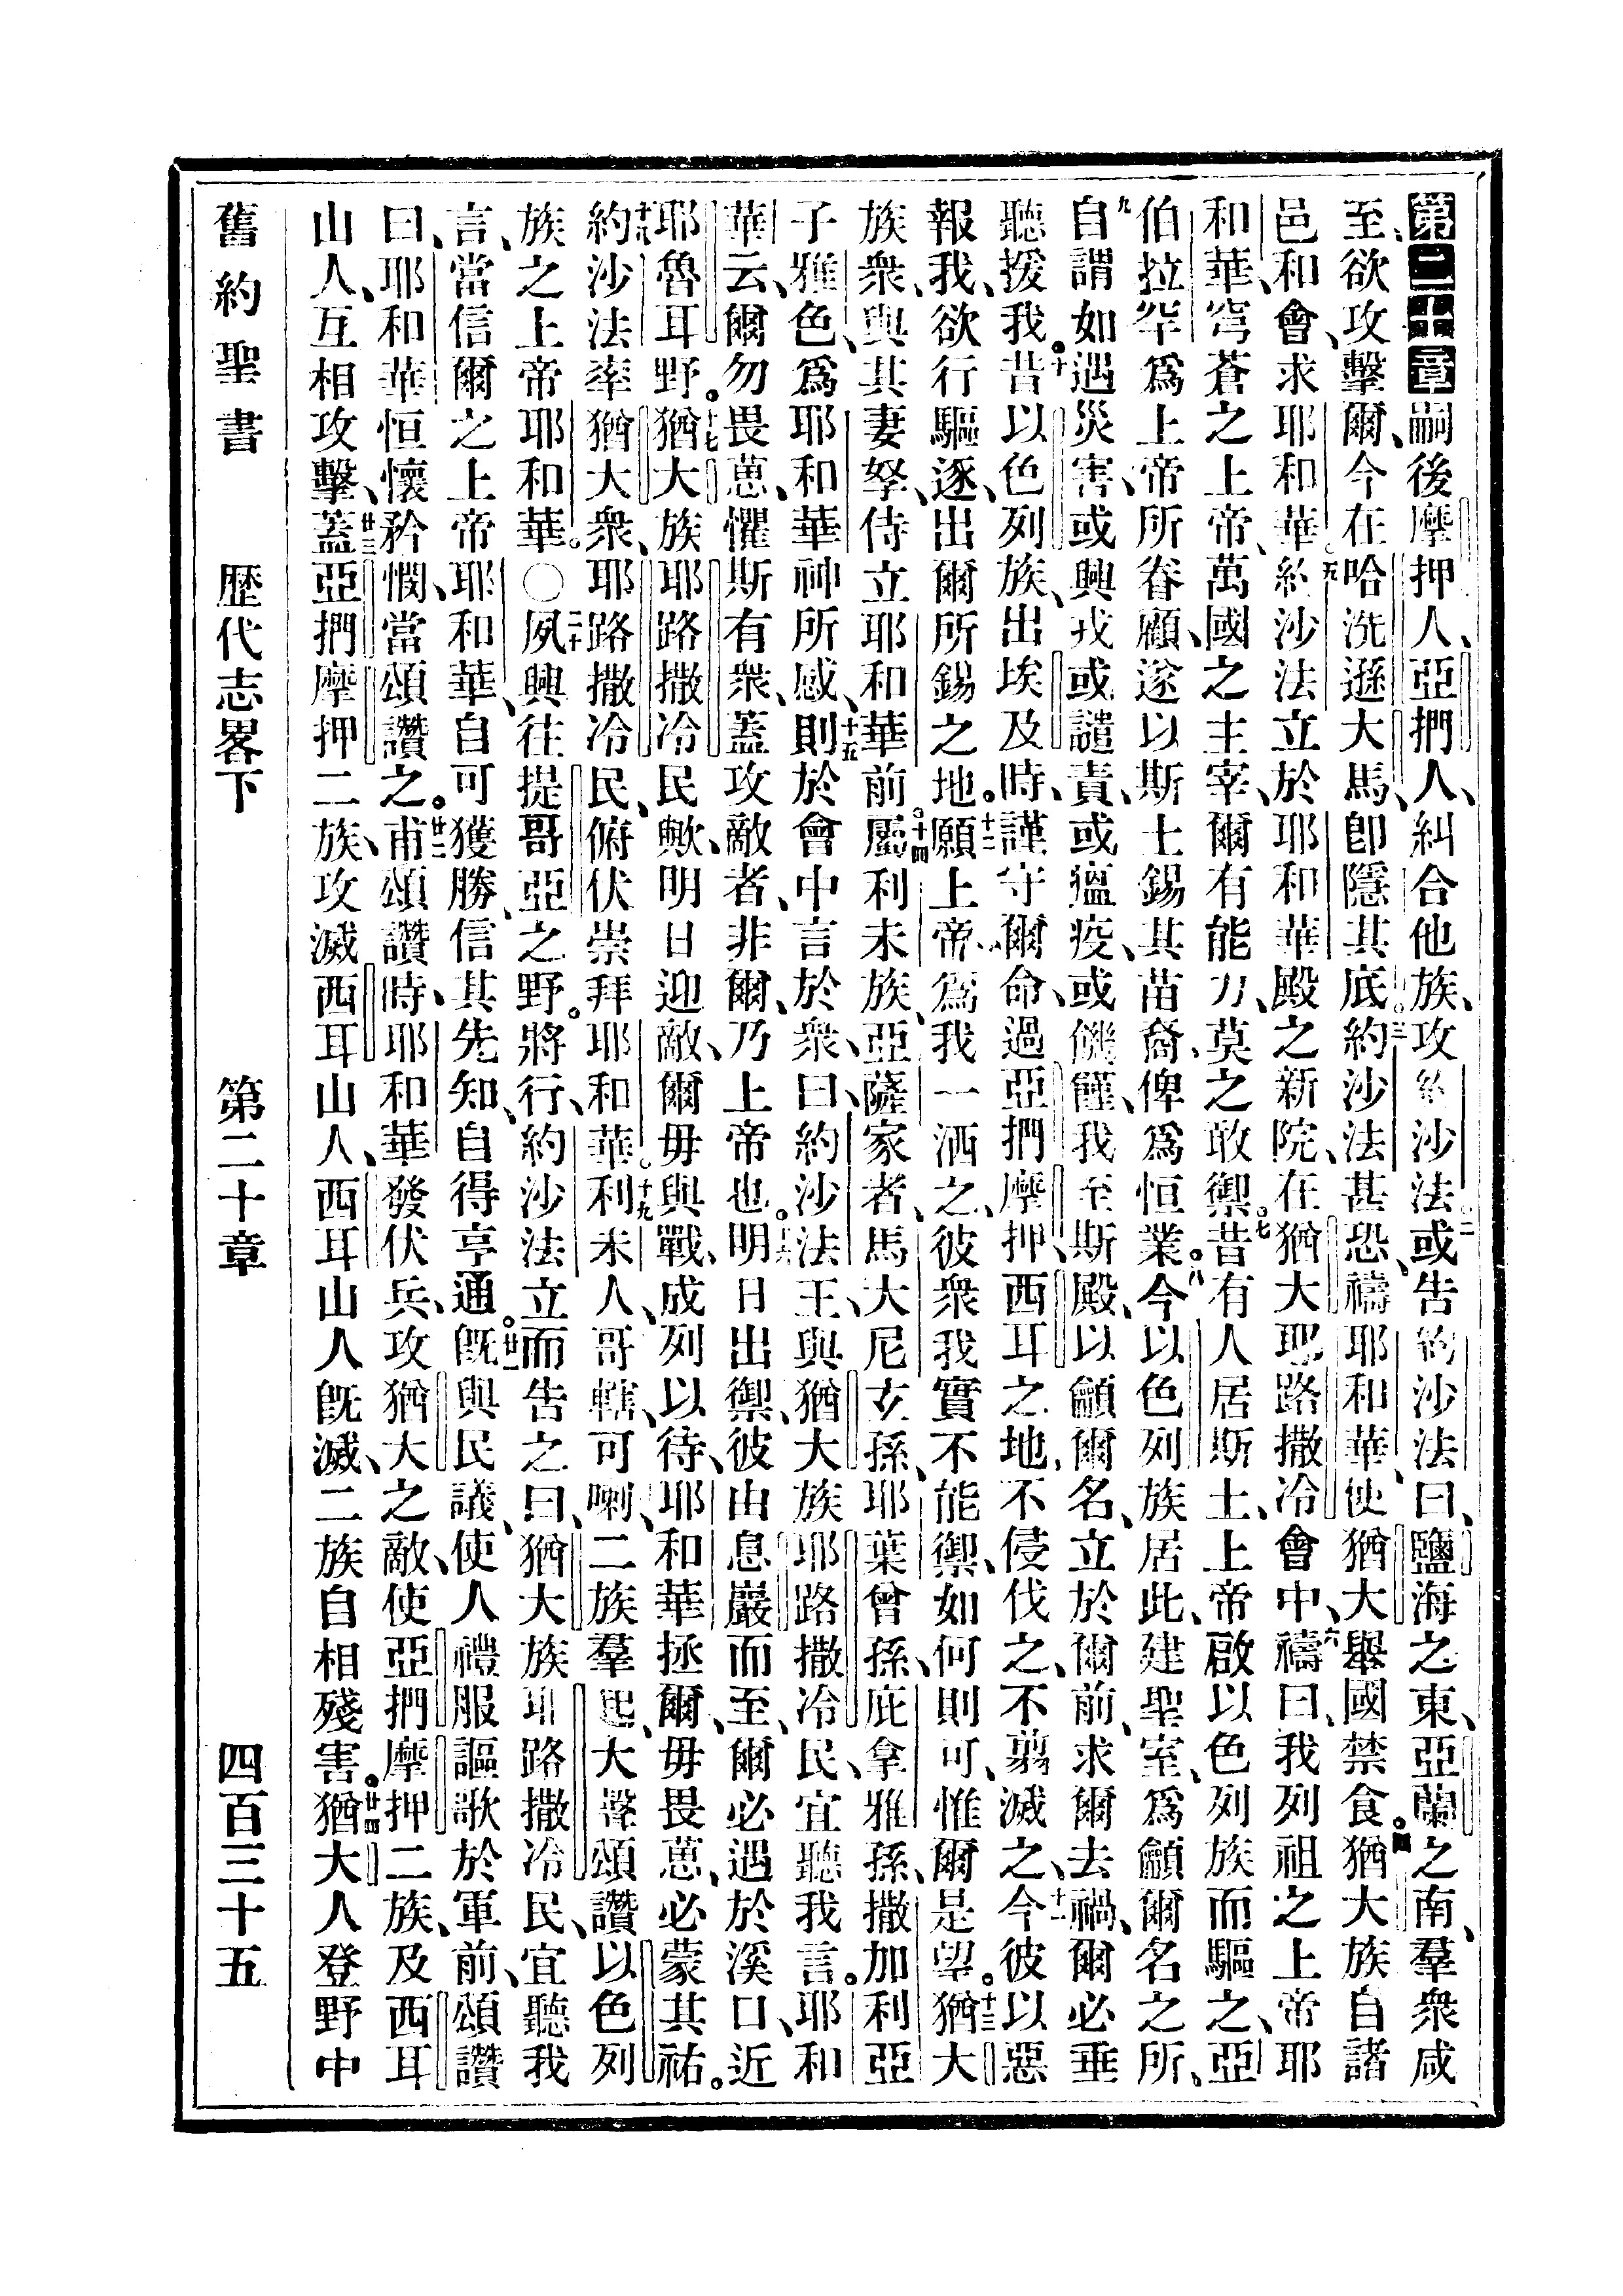 第二十章嗣後摩押人、亞捫人、糾合他族、攻約沙法。二或告約沙法曰、鹽海之東、亞蘭之南、羣衆咸
至、欲攻擊爾、今在哈洗遜大馬、卽隱其底。三約沙法甚恐、禱耶和華、使猶大舉國禁食。四猶大族自諸
邑和會、求耶和華。五約沙法立於耶和華殿之新院、在猶大耶路撒冷會中、六禱曰、我列祖之上帝耶
和華、穹蒼之上帝、萬國之主宰、爾有能力、莫之敢禦。七昔有人居斯土、上帝啟以色列族而驅之、亞
伯拉罕爲上帝所眷顧、遂以斯土錫其苗裔、俾爲恒業。八今以色列族居此、建聖室、爲籲爾名之所、
九自謂如遇災害、或興戎、或譴責、或瘟疫、或饑饉、我至斯殿、以籲爾名、立於爾前、求爾去禍、爾必垂
聽援我。十昔以色列族、出埃及時、謹守爾命、過亞捫摩押、西耳之地、不侵伐之、不翦滅之、十一今彼以惡
報我、欲行驅逐、出爾所錫之地。十二願上帝爲我一洒之、彼衆我實不能禦、如何則可、惟爾是望。十三猶大
族衆、與其妻孥、侍立耶和華前。十四屬利未族、亞薩家者、馬大尼玄孫、耶葉曾孫、庇拿雅孫、撒加利亞
子雅色、爲耶和華神所感、十五則於會中言於衆、曰、約沙法王、與猶大族耶路撒冷民、宜聽我言。耶和
華云、爾勿畏葸、懼斯有衆、蓋攻敵者、非爾、乃上帝也。十六明日出禦、彼由息巖而至、爾必遇於溪口、近
耶魯耳野。十七猶大族耶路撒冷民歟、明日迎敵、爾毋與戰、成列以待、耶和華拯爾、毋畏葸、必蒙其祐。
十八約沙法率猶大衆、耶路撒冷民、俯伏崇拜耶和華。十九利未人、哥轄、可喇、二族羣起、大聲頌讚以色列
族之上帝耶和華。〇二十夙興、往提哥亞之野。將行、約沙法立而告之曰、猶大族耶路撒冷民、宜聽我
言、當信爾之上帝耶和華、自可獲勝、信其先知、自得亨通。廿一旣與民議、使人禮服謳歌於軍前、頌讚
曰、耶和華恒懷矜憫、當頌讚之。廿二甫頌讚時、耶和華發伏兵、攻猶大之敵、使亞捫摩押二族、及西耳
山人、互相攻擊、廿三蓋亞捫摩押二族、攻滅西耳山人、西耳山人旣滅、二族自相殘害。廿四猶大人登野中
舊約聖書　歷代志畧下　第二十章　四百三十五